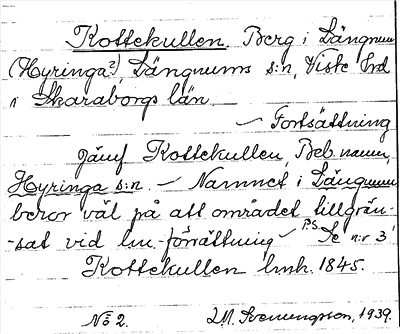 Kottekullen. Berg i Längnum
(Hyringa?), Längnums s:n, Viste hd
i Skaraborgs län.
— Fortsättning
jämf Kottekullen, Beb. namn,
Hyringa s:n. — Namnet i Längnum
beror väl på att området tillgrän-
-sat vid lm.-förrättning — P.S. Se n:r 3
Kottekullen lmh. 1845.
No 2. 1939.